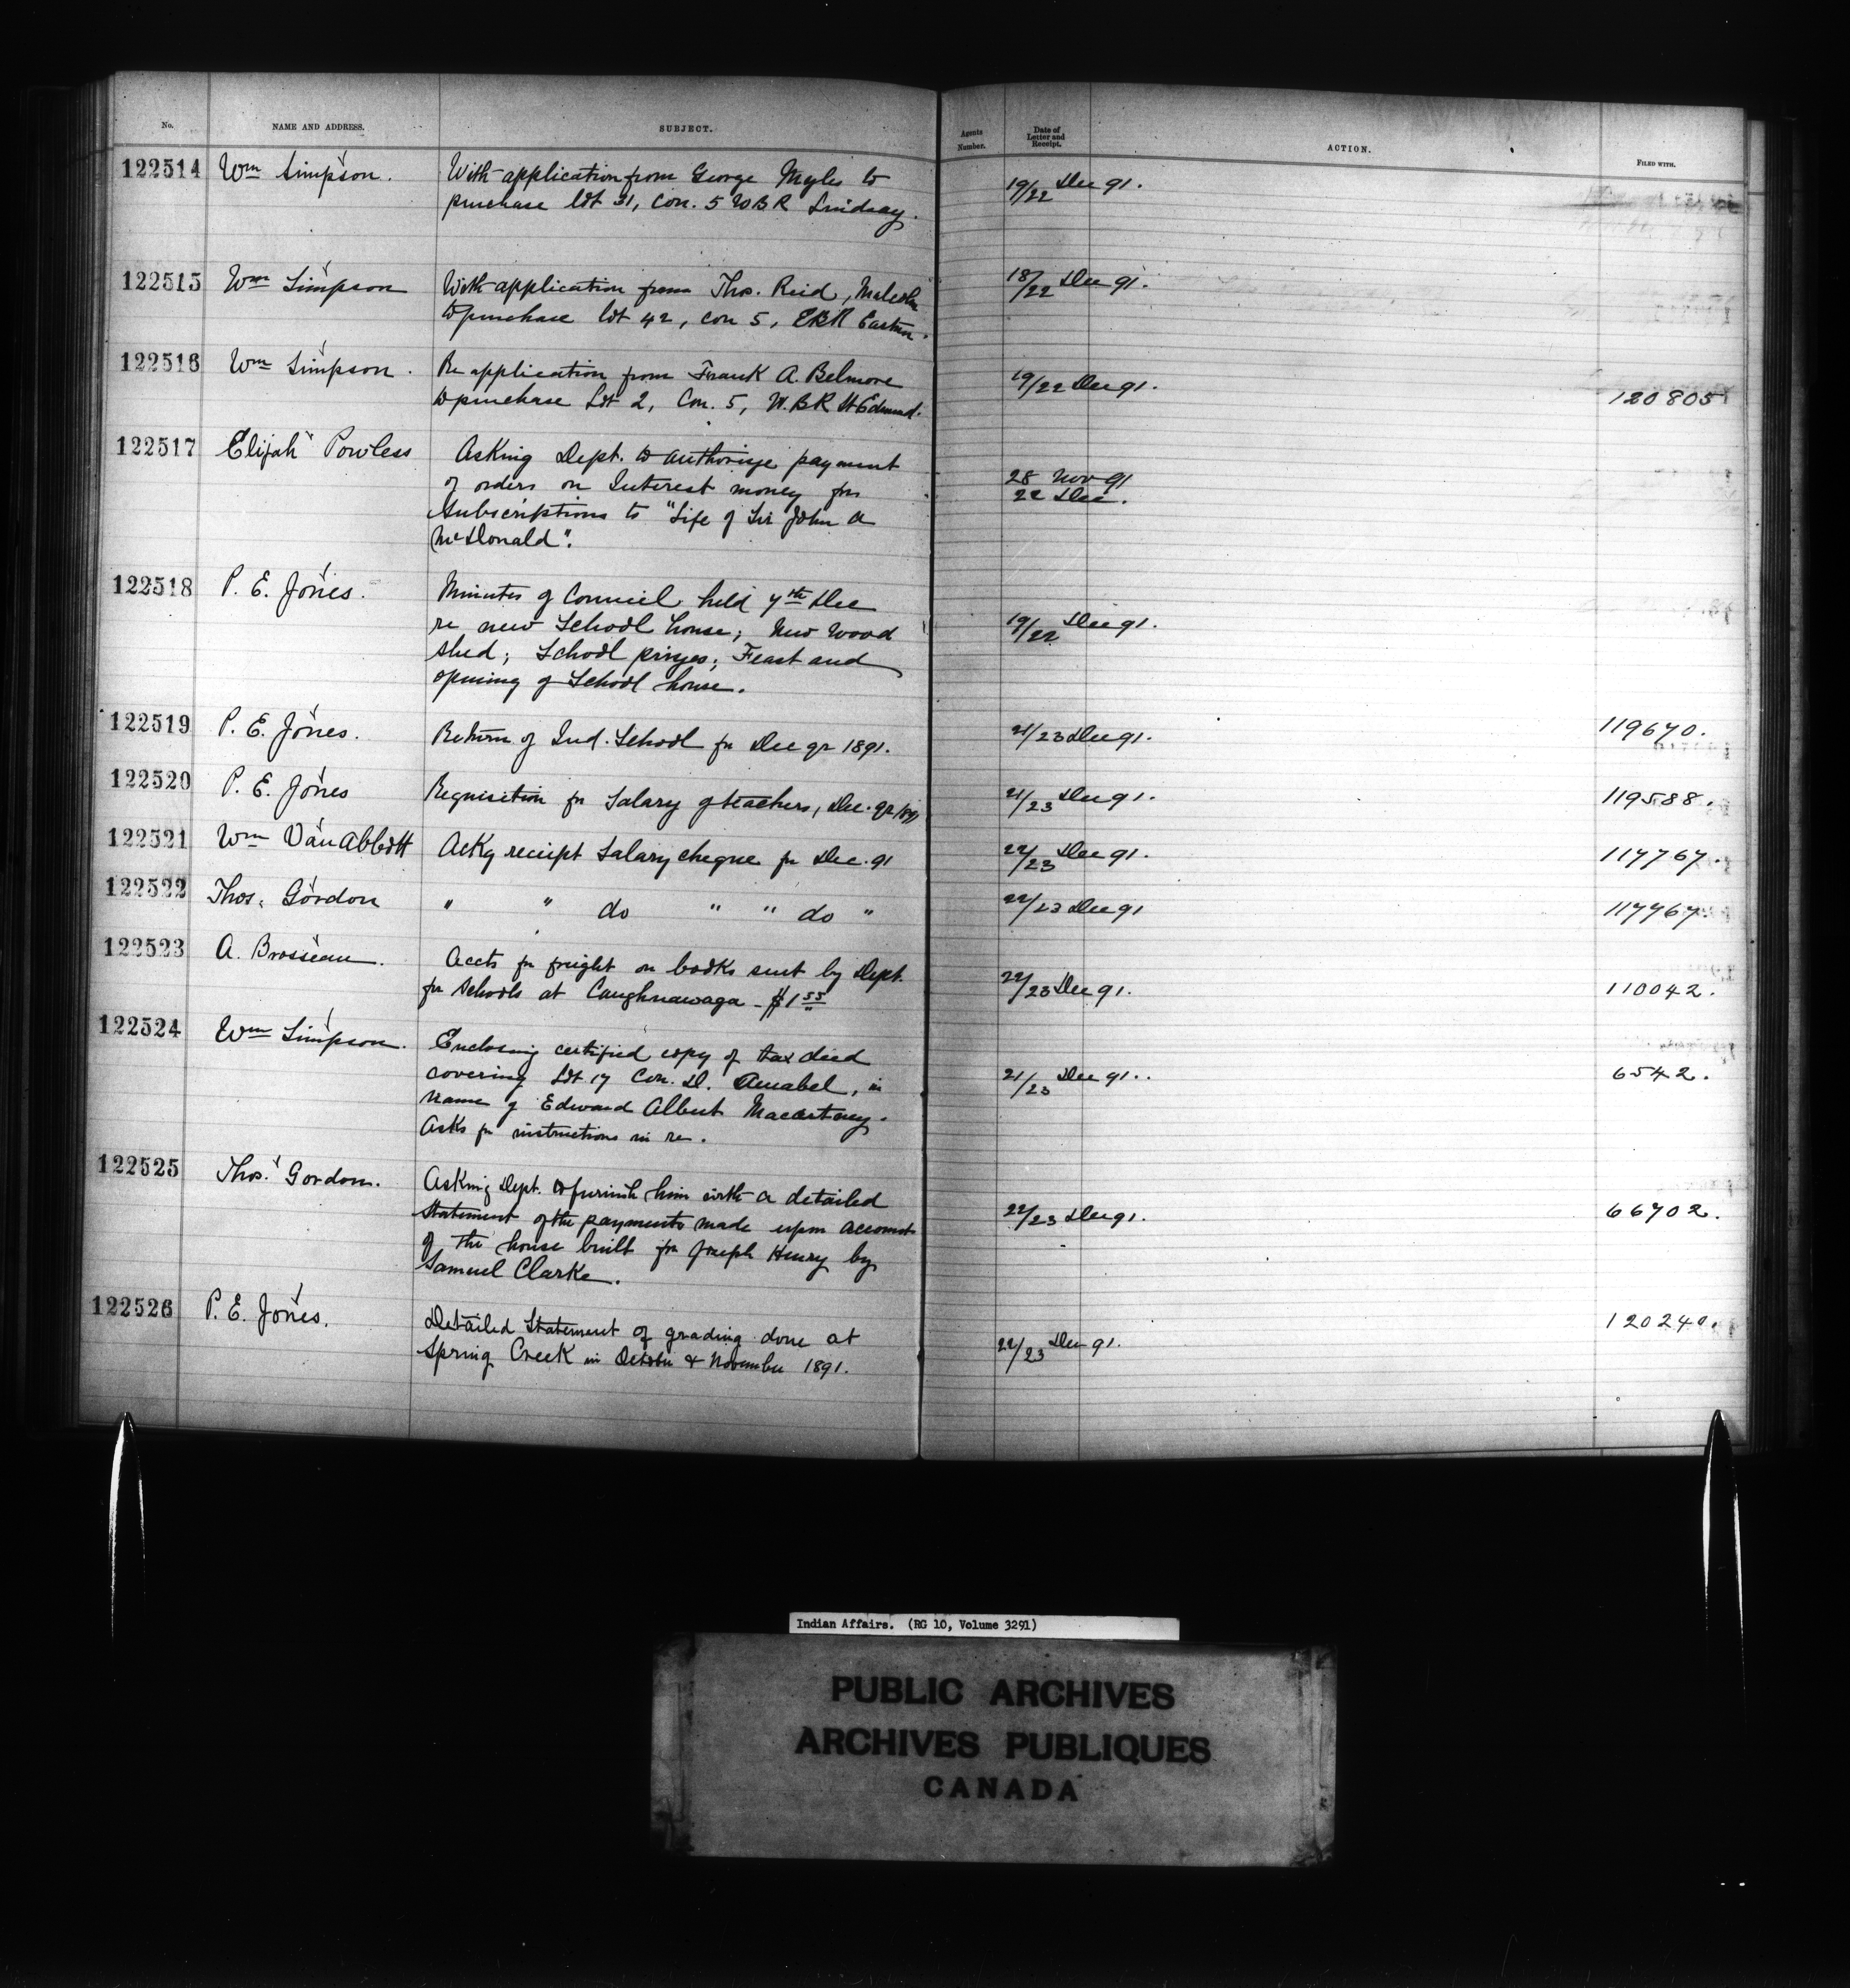 No. NAME AND ADDRESS. SUBJECT. Agents Number. Date of Letter and Receipt. ACTION. FILED WITH.
122514 Wm Simpson. With application from George Myles to 19/22 Dec 91.
purchase lot 31, Con. 5 WBR Lindsay.
122515 Wm Simpson With application from Thos. Reid, Malcolm 18/22 Dec 91.
to purchase lot 42, con 5, EBR Eastnor.
122516 Wm Simpson. Re application from Frank A. Belmore 19/22 Dec 91.
to purchase Lot 2, Con. 5, W.BR St Edmund. 120805
122517 Elijah Powless Asking Dept. to authorize payment
of orders on Interest money for 28 Nov 91
Subscriptions to "Life of Sir John A 22 Dec.
McDonald".
122518 P. E. Jones. Minutes of Council held 7th Dec
re new School house; New Wood 19/22 Dec 91.
shed; School prizes; Feast and
opening of School house.
122519 P. E. Jones. Return of Ind. School for Dec qr 1891. 21/23 Dec 91. 119670.
122520 P. E. Jones Requisition for Salary of teachers, Dec. qr 1891 21/23 Dec 91. 119588.
122521 Wm Van Abbott Ackg receipt Salary cheque for Dec. 91 22/23 Dec 91. 117767.
122522 Thos. Gordon " " do " " do " 22/23 Dec 91 117767.
122523 A. Brosseau. Accts for freight on books sent by Dept.
for schools at Caughnawaga - $1 55 22/23 Dec 91. 110042.
122524 Wm Simpson. Enclosing certified copy of tax deed
covering Lot 17 Con. D. Amabel, in 21/23 Dec 91. 6542.
name of Edward Albert Macartney.
Asks for instructions in re.
122525 Thos. Gordon. Asking Dept. to furnish him with a detailed
Statement of the payments made upon account 22/23 Dec 91. 66702.
of the house built for Joseph Henry by
Samuel Clarke.
122526 P. E. Jones. Detailed Statement of grading done at 120240.
Spring Creek in October & November 1891. 22/23 Dec 91.
Indian Affairs. (RG 10, Volume 3291)
PUBLIC ARCHIVES
ARCHIVES PUBLIQUES
CANADA